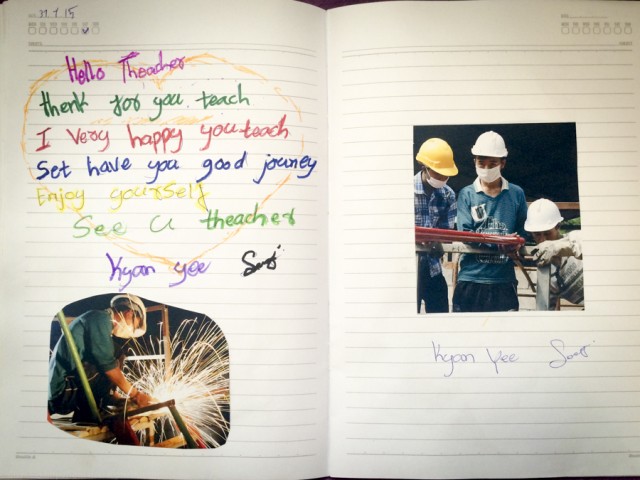 31.7.15
Hello Theacher
thenk for you teach
I very happy you teach
Set have you good jouney
Enjoy yourself
See u theacher
Kyan yee
Kyan Yee